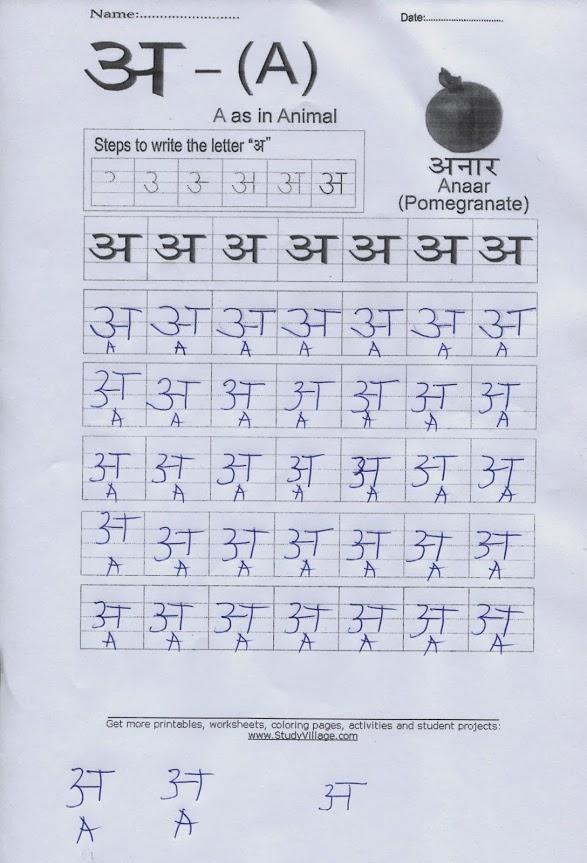 Name:.........................
Date:.........................
अ – (A)
A as in Animal
Steps to write the letter "अ"
अ
अनार
Anaar
(Pomegranate)
अ अ अ अ अ अ अ
अ अ अ अ अ अ अ
A A A A A A A
अ अ अ अ अ अ अ
A A A A A A A
अ अ अ अ अ अ अ
A A A A A A A
अ अ अ अ अ अ अ
A A A A A A A
अ अ अ अ अ अ अ
A A A A A A A
Get more printables, worksheets, coloring pages, activities and student projects:
www.StudyVillage.com
अ अ अ
A A